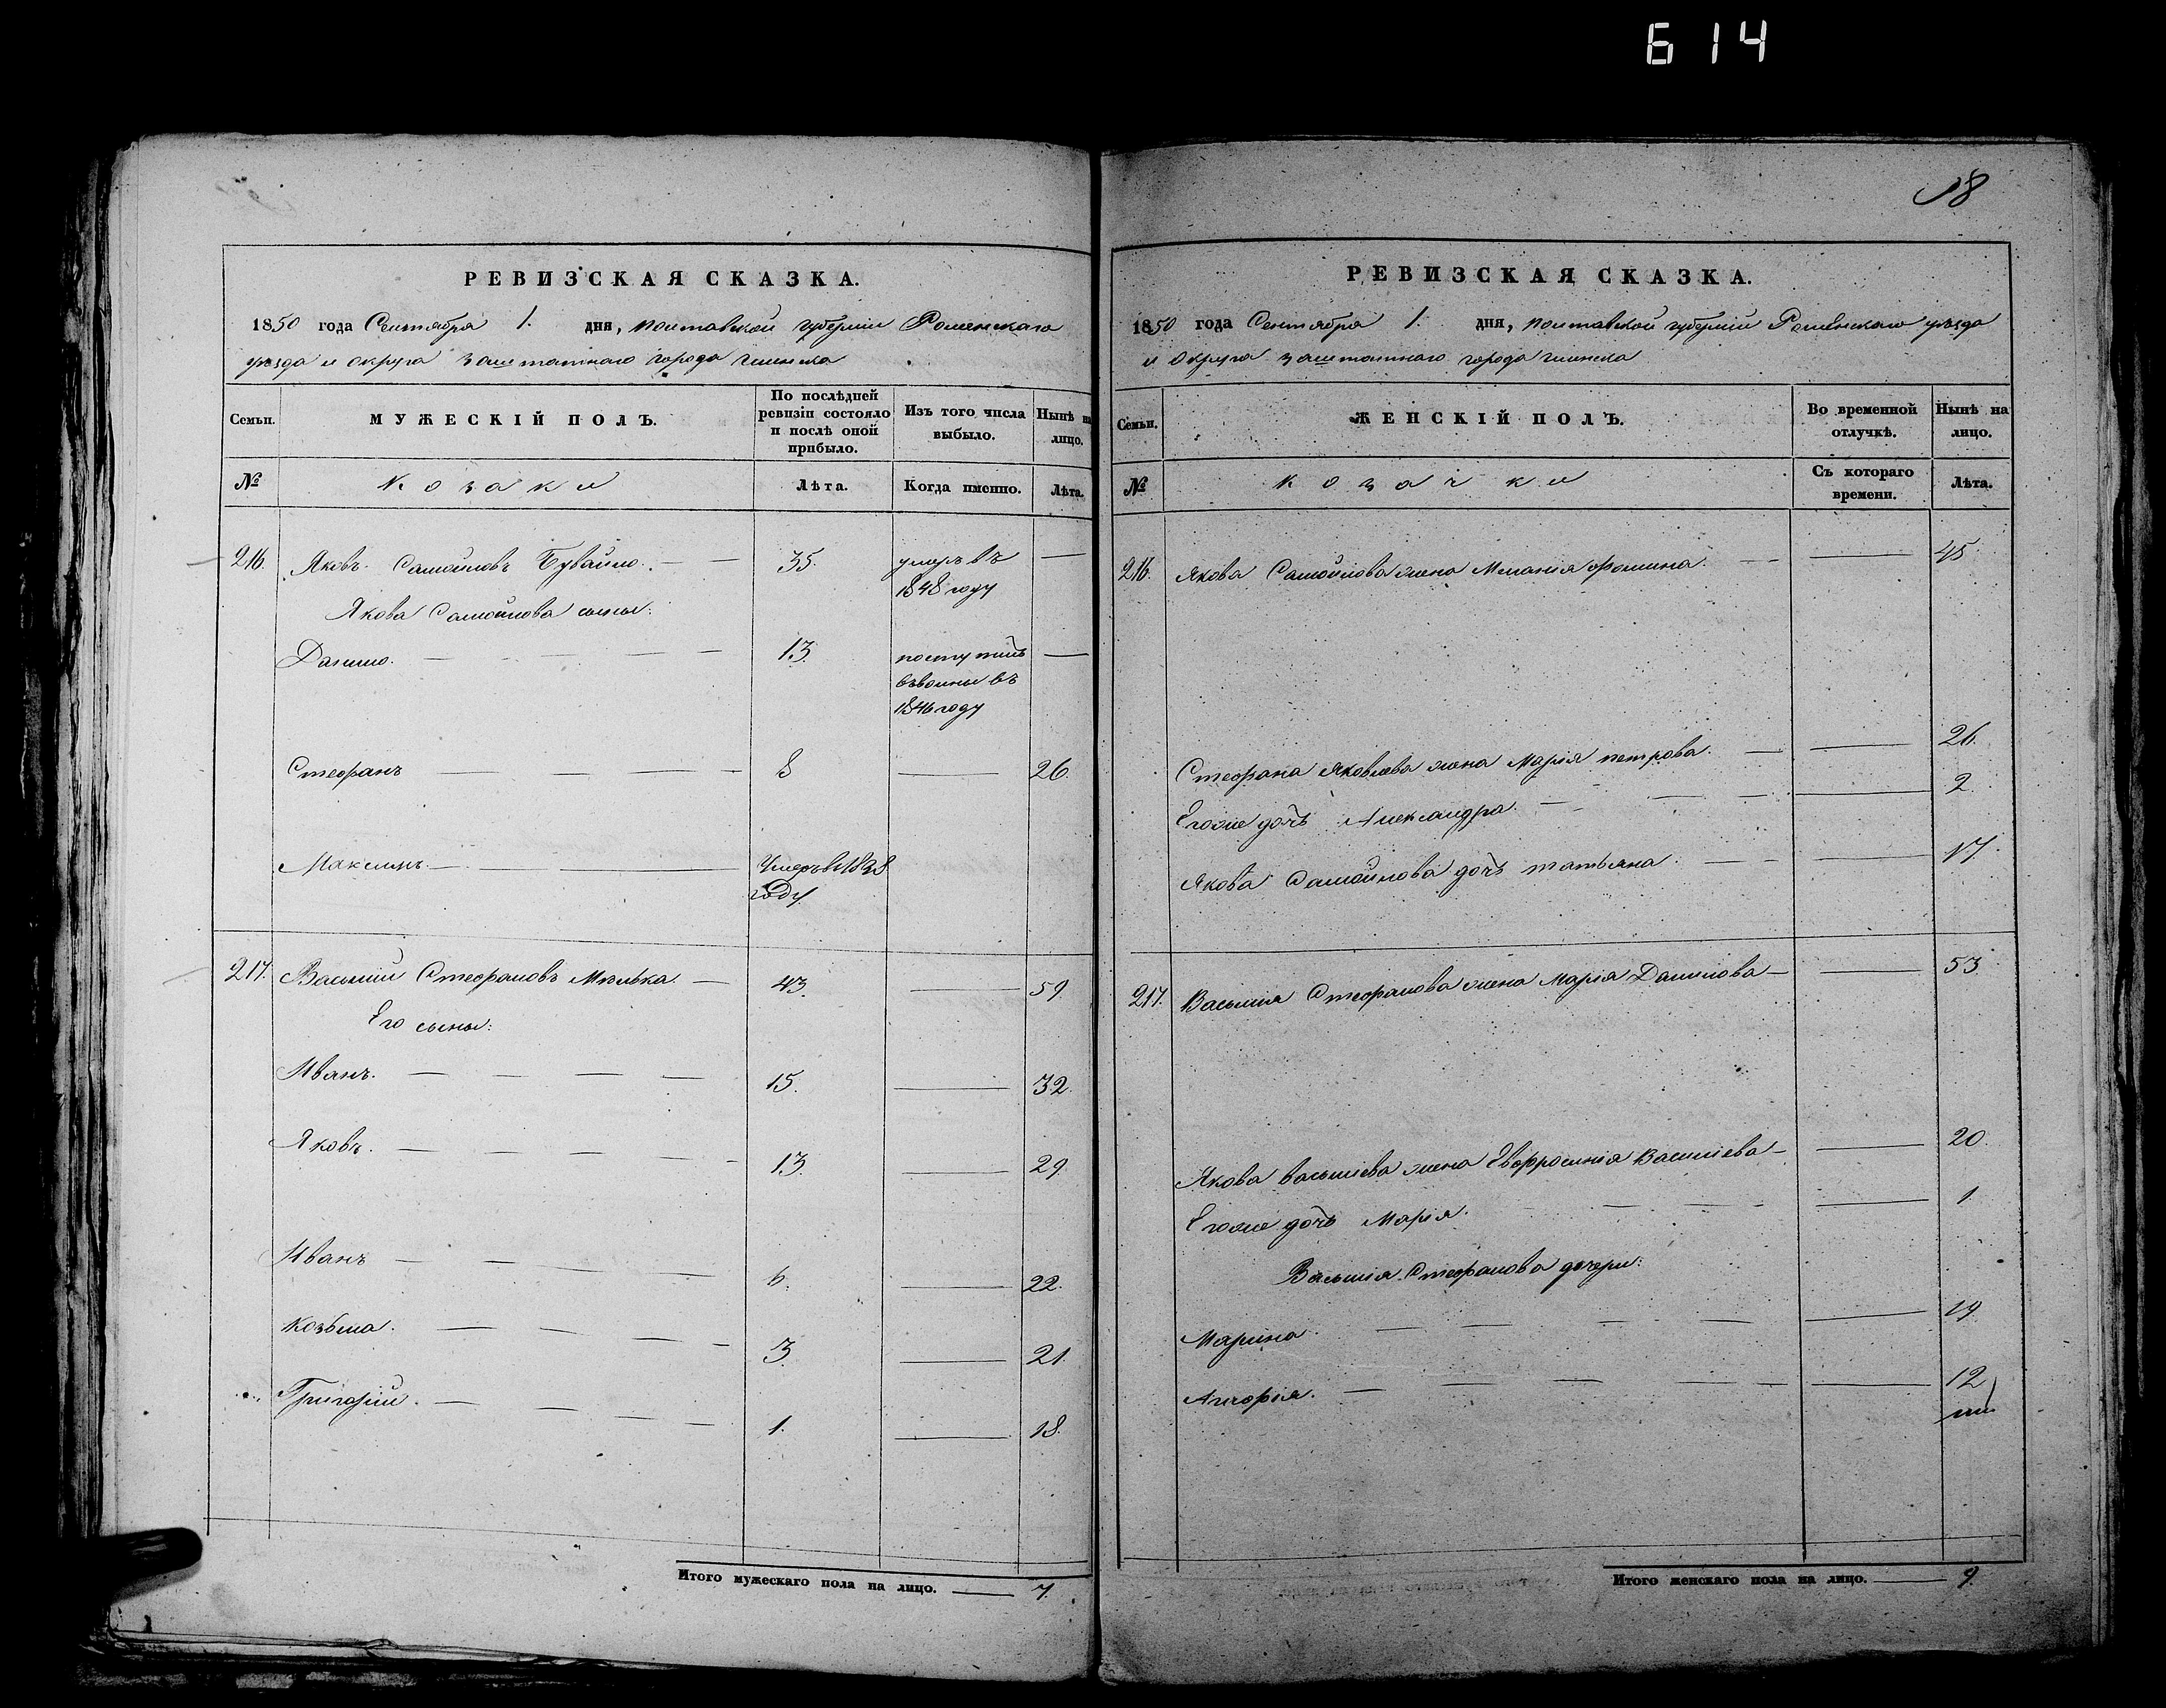 614
РЕВИЗСКАЯ СКАЗКА.
1850 года Сентября 1. дня, полтавской губерніи Роменскаго
уѣзда и округа заштатнаго города глинска
Семьи.
МУЖЕСКІЙ ПОЛЪ.
По послѣдней ревизіи состояло и послѣ оной прибыло.
Изъ того числа выбыло.
Нынѣ на лицо.
№
козаки
Лѣта.
Когда именно.
Лѣта.
216. Яковъ Самойловъ 35. умеръ въ —
1848 году
Якова Самойлова сыны:
Данило. 13. поступилъ —
въ 1846 году
Стефанъ 8 — 26.
Максимъ. — Умеръ в 1838
году
217. Василій Стефановъ 43. — 59
Его сыны:
Иванъ. 15. — 32.
Яковъ. 13. — 29
Иванъ 6. — 22.
Козьма. 3. — 21.
Григорій. 1. — 18.
Итого мужескаго пола на лицо. — 7.
18
РЕВИЗСКАЯ СКАЗКА.
1850 года Сентября 1. дня, полтавской губерніи Роменскаго уѣзда
и округа заштатнаго города глинска
Семьи.
ЖЕНСКІЙ ПОЛЪ.
Во временной отлучкѣ.
Нынѣ на лицо.
№
козачки
Съ котораго времени.
Лѣта.
216. Якова Самойлова жена Меланія фомина. — 45.
Стефана яковлева жена Марія петрова. — 26.
Егоже дочь Александра. — 2.
Якова Самойлова дочь татьяна. — 17.
217. Василія Стефанова жена Марія Данилова — 53
Якова васильева жена Евфросинія Васильева — 20.
Егоже дочь Марія. — 1.
Василія Стефанова дочери:
Марина. — 19
— 12
Итого женскаго пола на лицо. — 9.